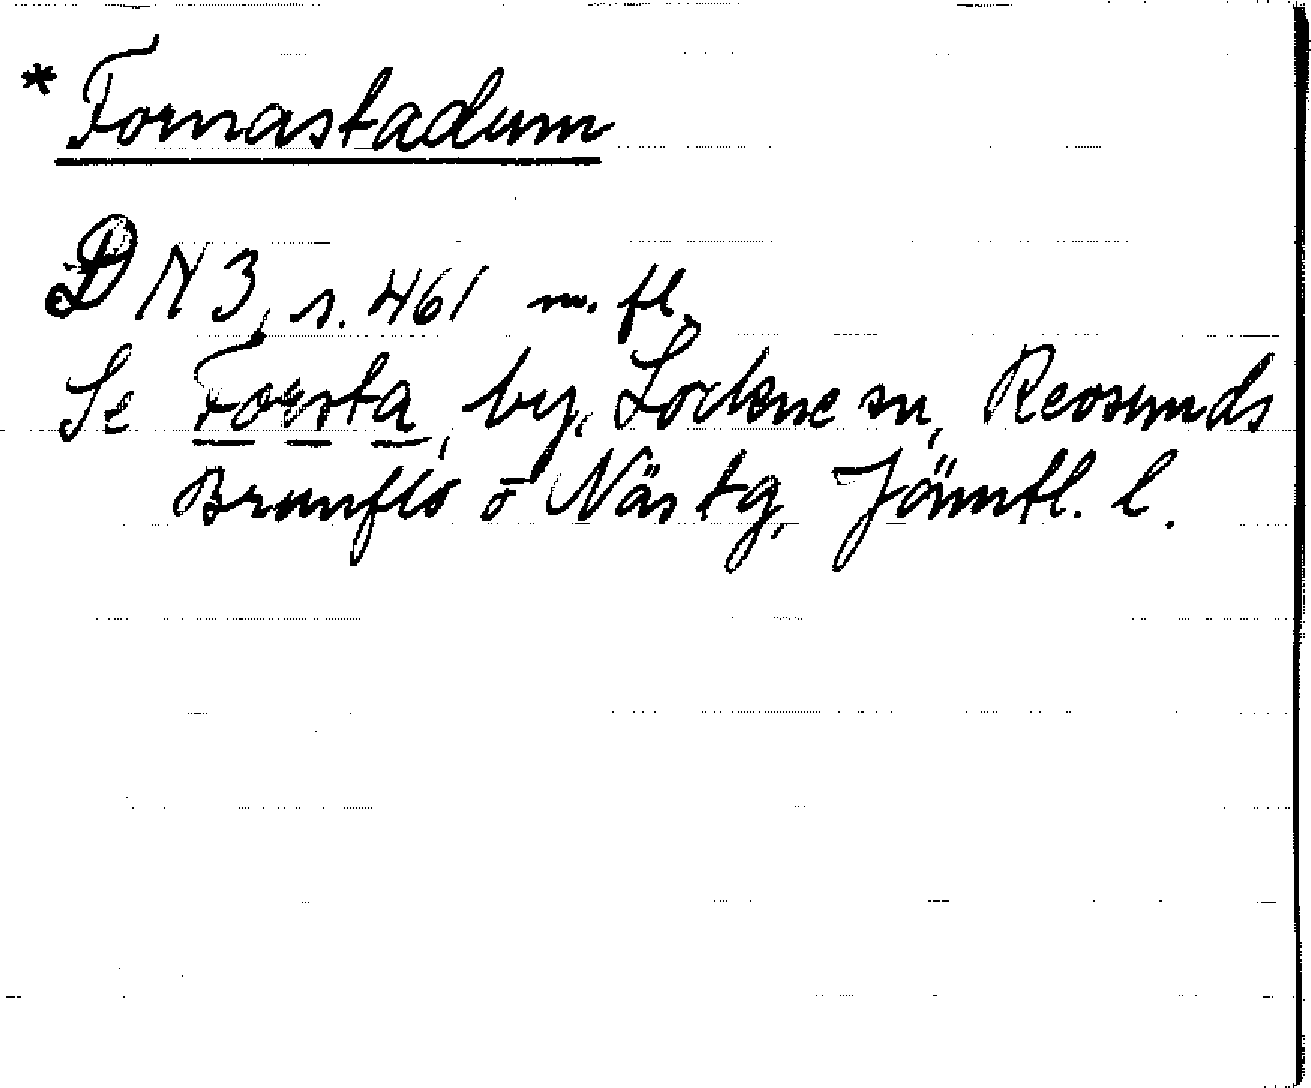 * Fornastadum
DN 3, s. 461 m. fl.
Se Forsta, by, Lockne sn, Revsunds
Brunflo o Näs tg, Jämtl. l.